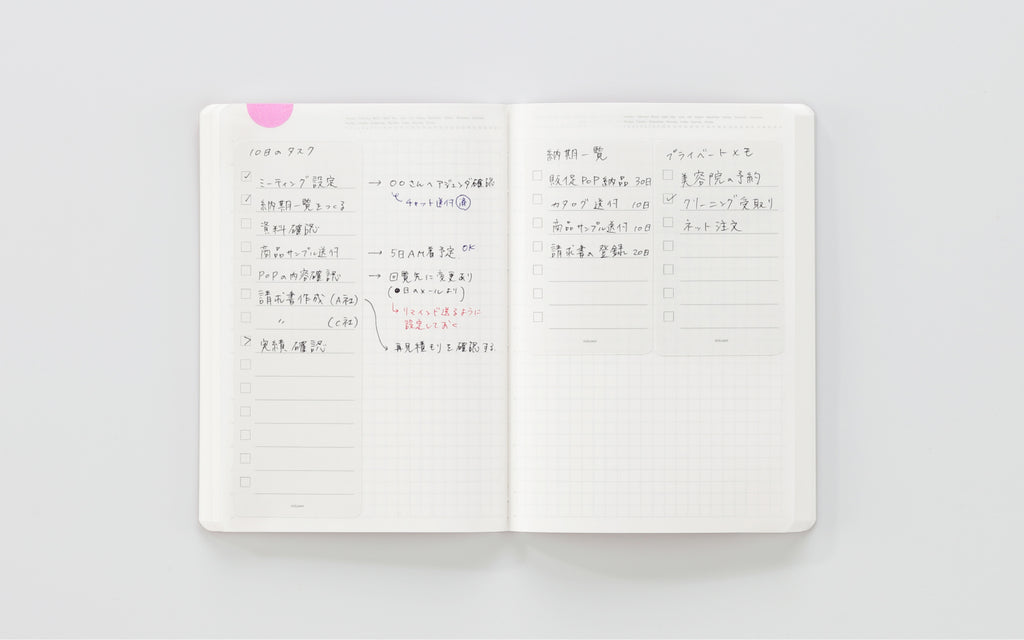 10日のタスク
ミーティング設定 → 〇〇さんへアジェンダ確認
納期一覧をつくる チャット送付 済
資料確認
商品サンプル送付 → 5日AM着予定 OK
POPの内容確認 → 回覧先に変更あり
請求書作成 (A社) (●日のメールより)
〃 (C社) リマインド送るように
設定しておく
実績確認 再見積もりを確認する
納期一覧
販促POP納品 30日
カタログ送付 10日
商品サンプル送付 10日
請求書の登録 20日
プライベートメモ
美容院の予約
クリーニング受取り
ネット注文